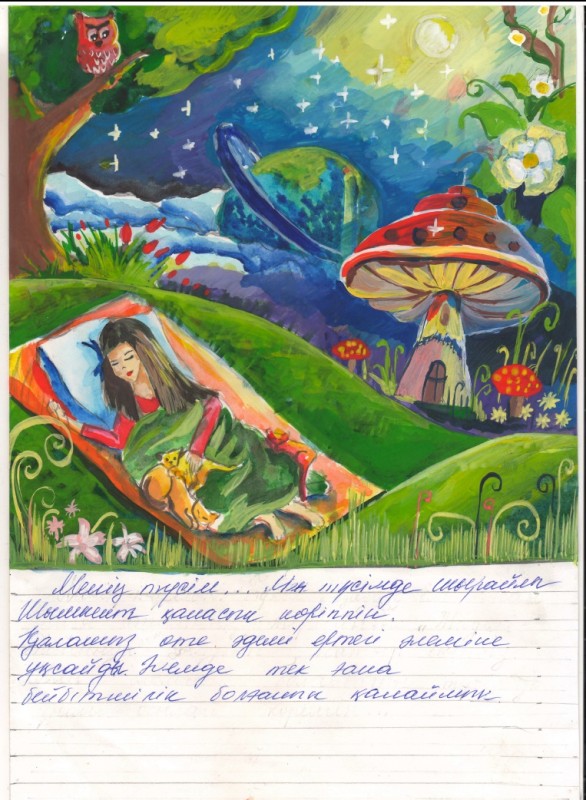 Менің түсім... Мен түсімде шырайлы
Шымкент қаласын көріппін.
Қаламыз өте әдемі ертегі әлеміне
ұқсайды. Әлемде тек ғана
бейбітшілік болғанын қалаймын